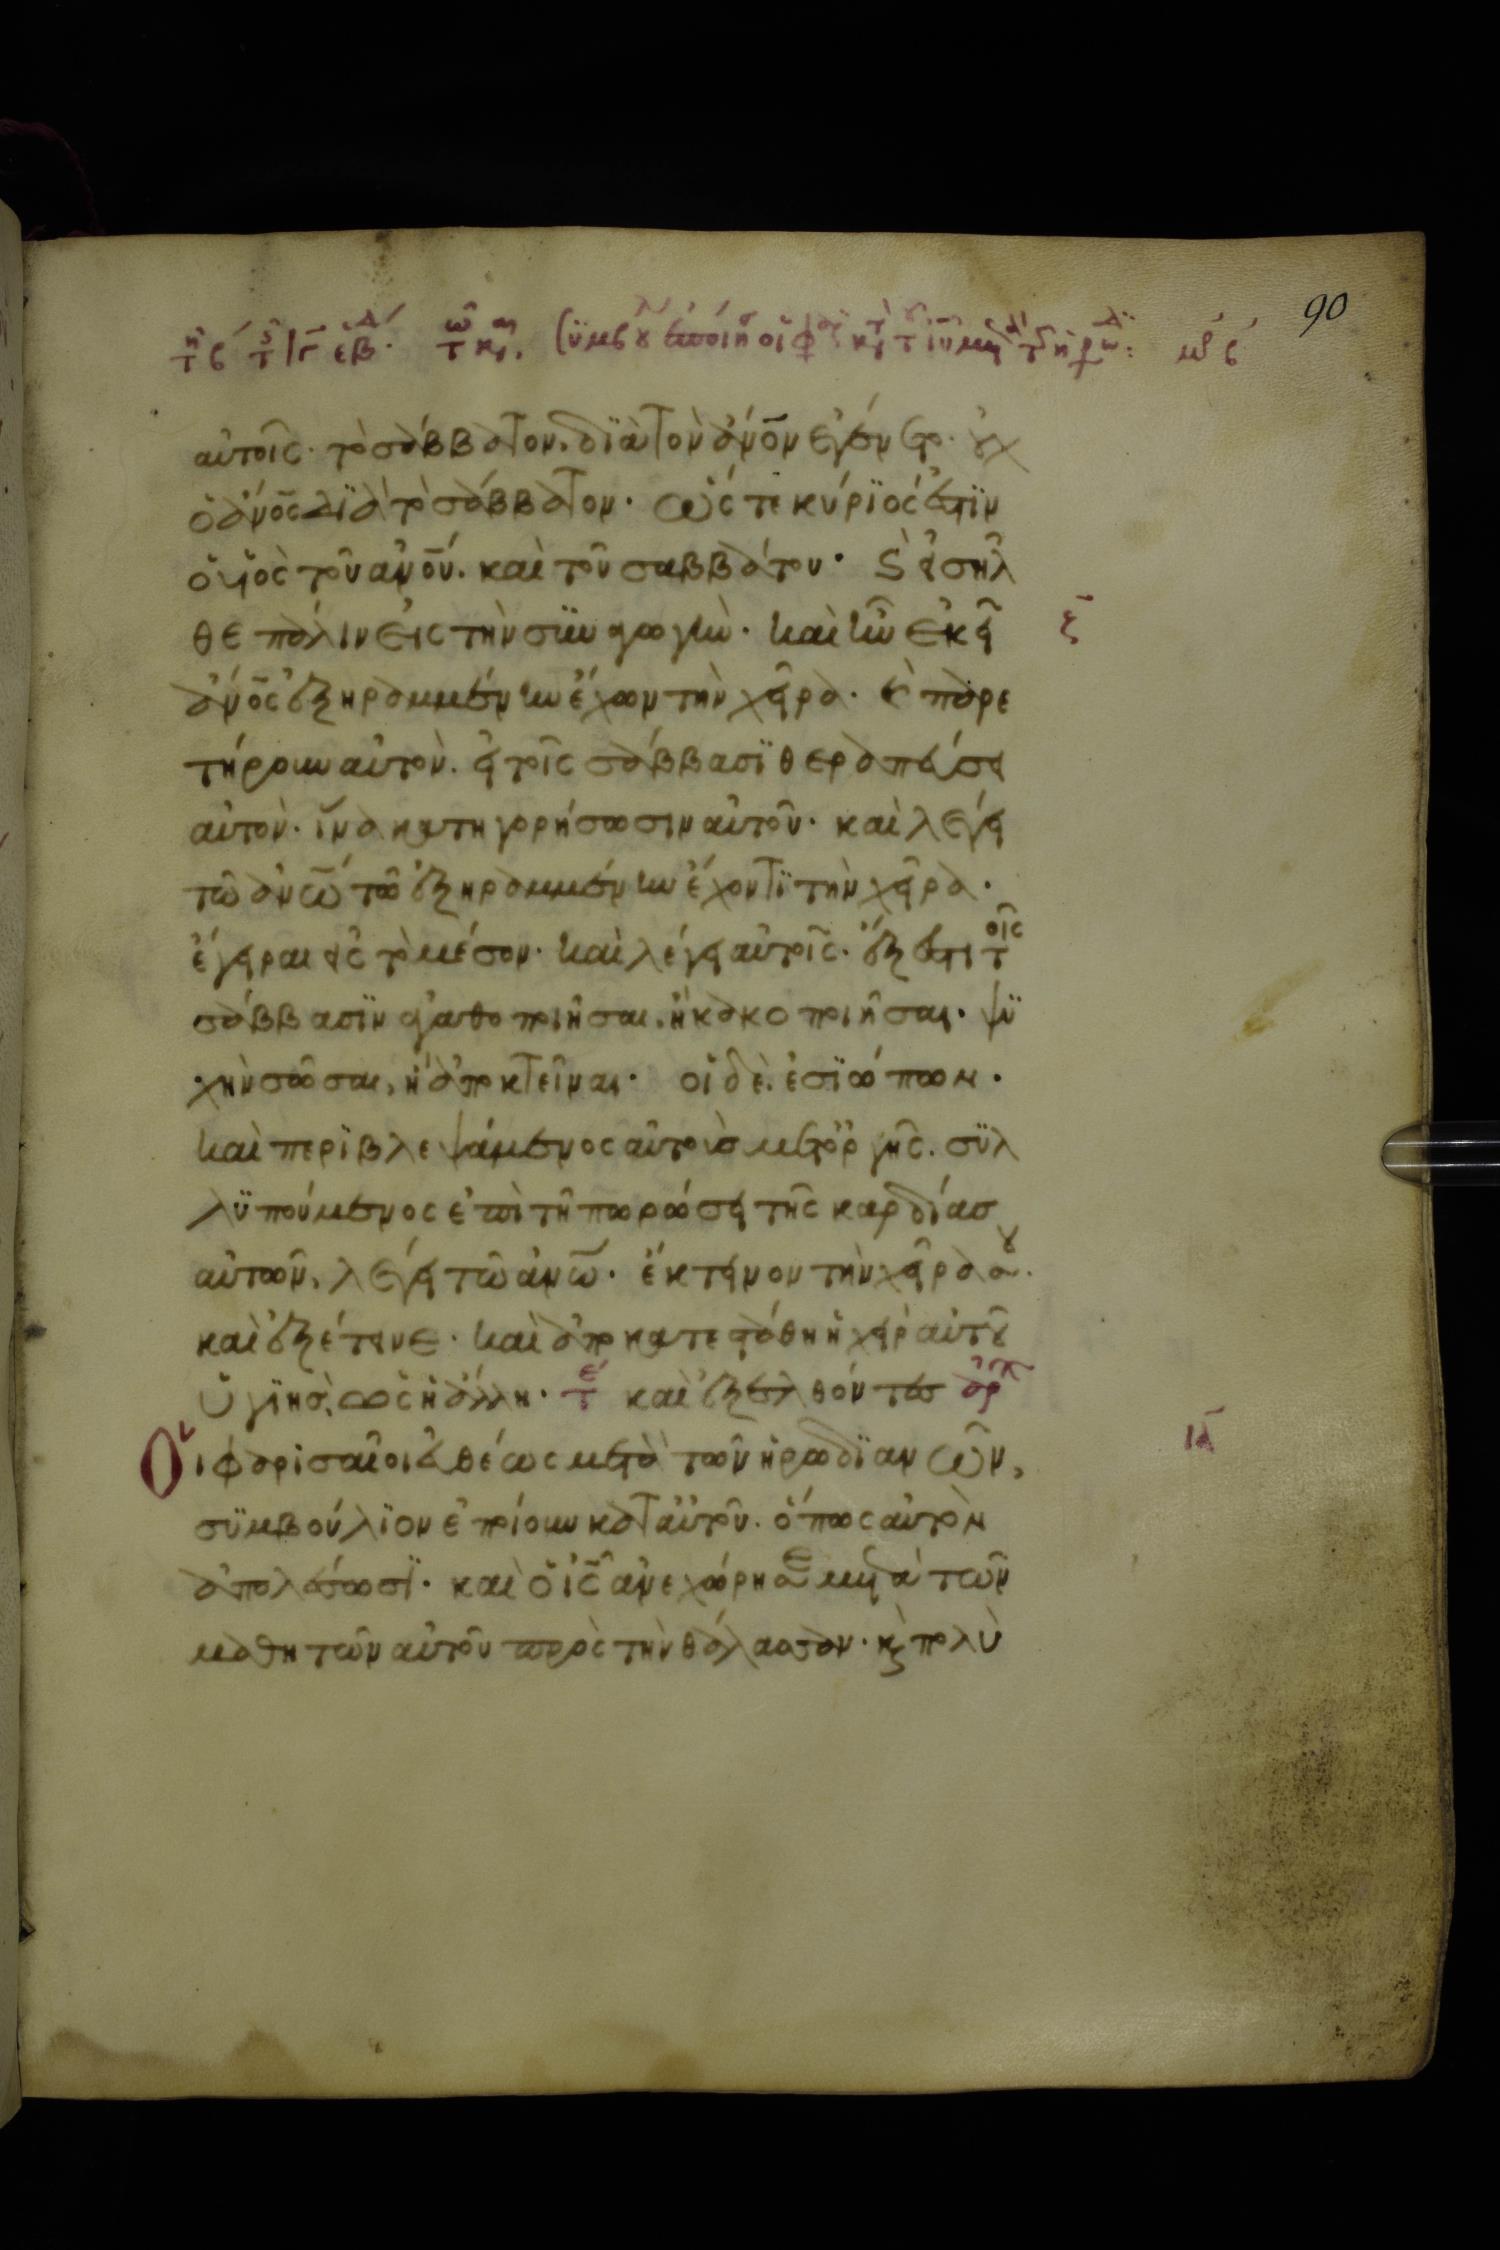 90
αὐτοῖς· τὸ σάββατον. διὰ τὸν ἄνο̅ν ἐγένετο· οὐχ
ὁ ἄνο̅ς διὰ τὸ σάββατον· ὥς τε κύρϊός ἐστϊν
ὁ υἱὸς τοῦ ἀνο̅υ. καὶ τοῦ σαββάτου· ϛ εἰσῆλ
θε πάλιν εἰς τὴν συναγωγήν· καὶ ἦν ἐκεῖ
ἄνο̅ς ἐξηραμμένην ἔχων τὴν χεῖρα· ϛ παρε
τήρουν αὐτὸν. εἰ τοῖς σάββασϊ θεραπεύσει
αὐτὸν· ἵνα κατηγορήσωσιν αὐτοῦ· καὶ λέγει
τῶ ἀνω̅ τῶ ἐξηραμμένην ἔχοντϊ τὴν χεῖρα·
ἔγειραι εἰς τὸ μέσον· καὶ λέγει αὐτοῖς· ἔξεστι τοῖς
σάββασϊν ἀγαθοποιῆσαι, ἢ κακοποιῆσαι· ψϋ
χὴν σῶσαι, ἢ ἀποκτεῖναι· οἱ δὲ. ἐσϊώπων·
καὶ περϊβλεψάμενος αὐτοὺσ μετ ὀργῆς. σϋλ
λϋπούμενος ἐπὶ τῆ πωρώσει τῆς καρδίασ
αὐτῶν, λέγει τῶ ἀνω̅· ἔκτεινον τὴν χεῖρα σου·
καὶ ἐξέτεινε· καὶ ἀποκατεστάθη ἡ χεὶρ αὐτοῦ
ὑγϊὴσ, ὡς ἡ ἄλλη· τε καὶ ἐξελθόντεσ ἀρχ
Οἱ φαρισαῖοι εὐθέως μετὰ τῶν ἡρωδϊανῶν,
σϋμβούλϊον ἐποίουν κατ αὐτοῦ· ὅπως αὐτὸν
ἀπολέσωσϊ· καὶ ὁ ι̅ς ἀνεχώρησε μετὰ τῶν
μαθητῶν αὐτοῦ πρὸς τὴν θάλασσαν· κ πολὺ
ξ̅
ια̅